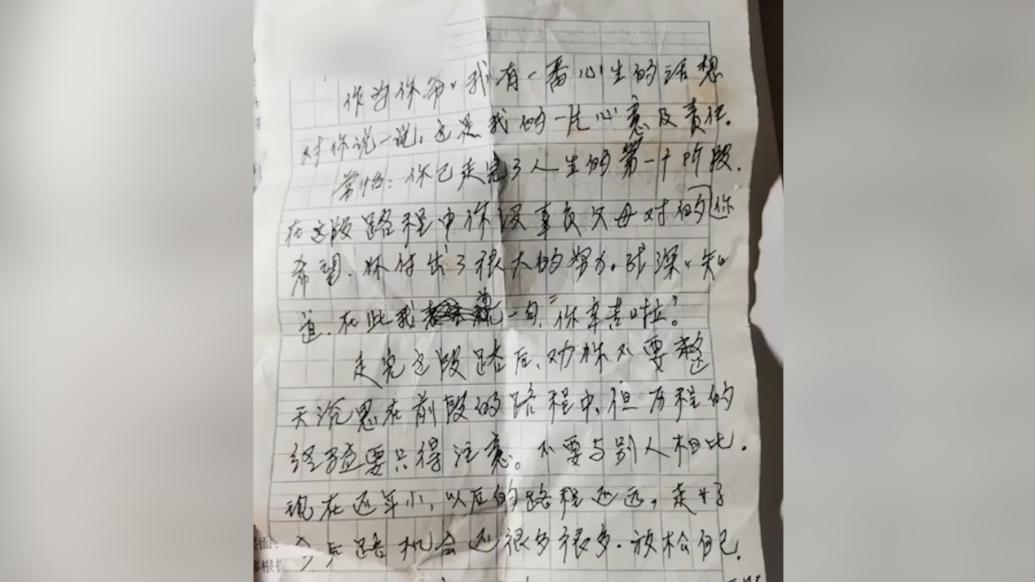 作为你爷，我有一番心里的话想
对你说一说，这是我的一片心意及责任。
常怡：你已走完了人生的第一个阶段，
在这段路程中你没辜负父母对的你
希望，你付出了很大的努力，我深深知
道，在此我说一句，“你辛苦啦”
走完这段路后，劝你不要整
天沉思在前段的路程中，但历程的
经验要只得注意。不要与别人相比，
现在还年小，以后的路程还远，走好
今后路机会还很多很多，放松自己，